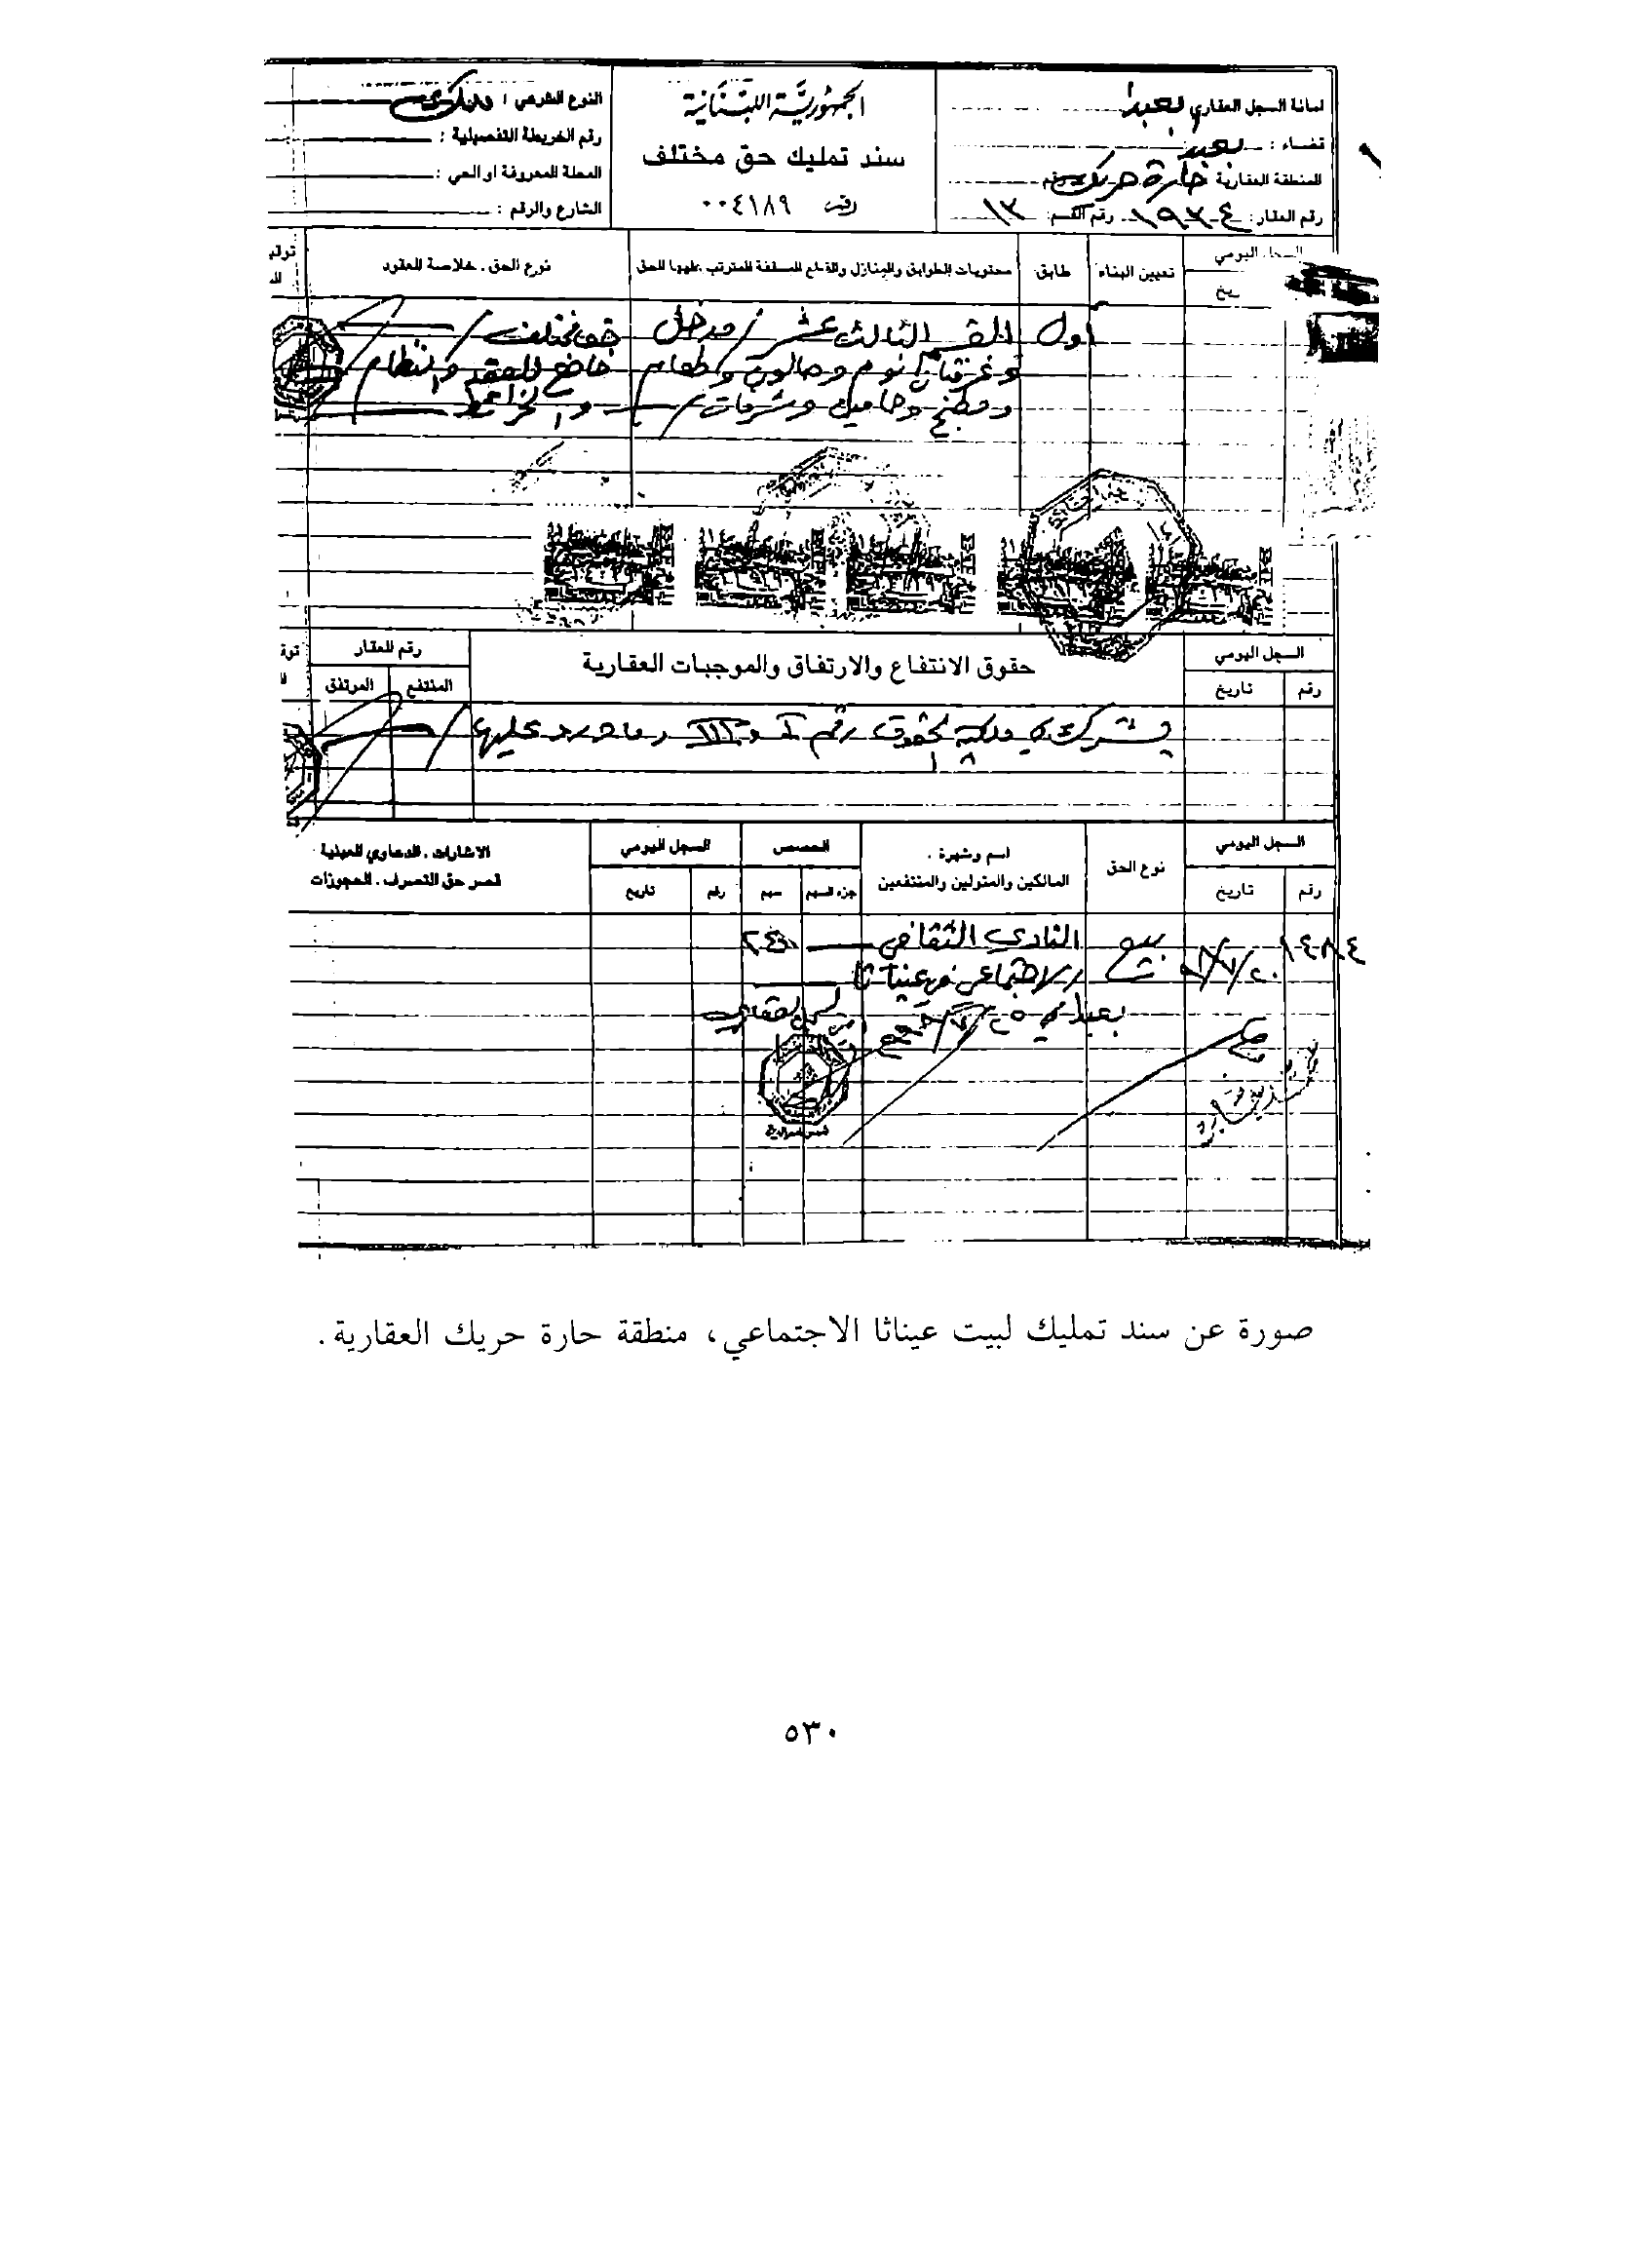 امانة السجل العقاري بعبدا
قضاء : بعبدا
المنطقة العقارية حارة حريك رقم
رقم العقار : ١٩٣٤ رقم القسم : ١٣
الجمهورية اللبنانية
سند تمليك حق مختلف
رقم ٠٠٤١٨٩
النوع الشرعي :
رقم الخريطة التفصيلية :
المحلة المعروفة او الحي :
الشارع والرقم :
السجل اليومي
تعيين البناء
طابق
محتويات الطوابق والمنازل والقطع المسقفة المترتب عليها الحق
نوع الحق . خلاصة العقود
اول القسم الثالث عشر / مدخل حق مختلف /
وغرفتان نوم وصالون وطعام خاضع للحقم والنظام
ومطبخ وحمامين وشرفات /
السجل اليومي
رقم تاريخ
حقوق الانتفاع والارتفاق والموجبات العقارية
رقم العقار
المنتفع المرتفق
يشترك في ملكية الحقوق رقم I و III
السجل اليومي
رقم تاريخ
نوع الحق
اسم وشهرة .
المالكين والمتولين والمنتفعين
الحصص
جزء السهم سهم
السجل اليومي
رقم تاريخ
الاشارات . الدعاوي العينية
قصر حق التصرف . الحجوزات
١٤٨٤ بيع النادي الثقافي ٢٤٠٠
الاجتماعي في عيناثا
بعبدا في
صورة عن سند تمليك لبيت عيناثا الاجتماعي، منطقة حارة حريك العقارية.
٥٣٠